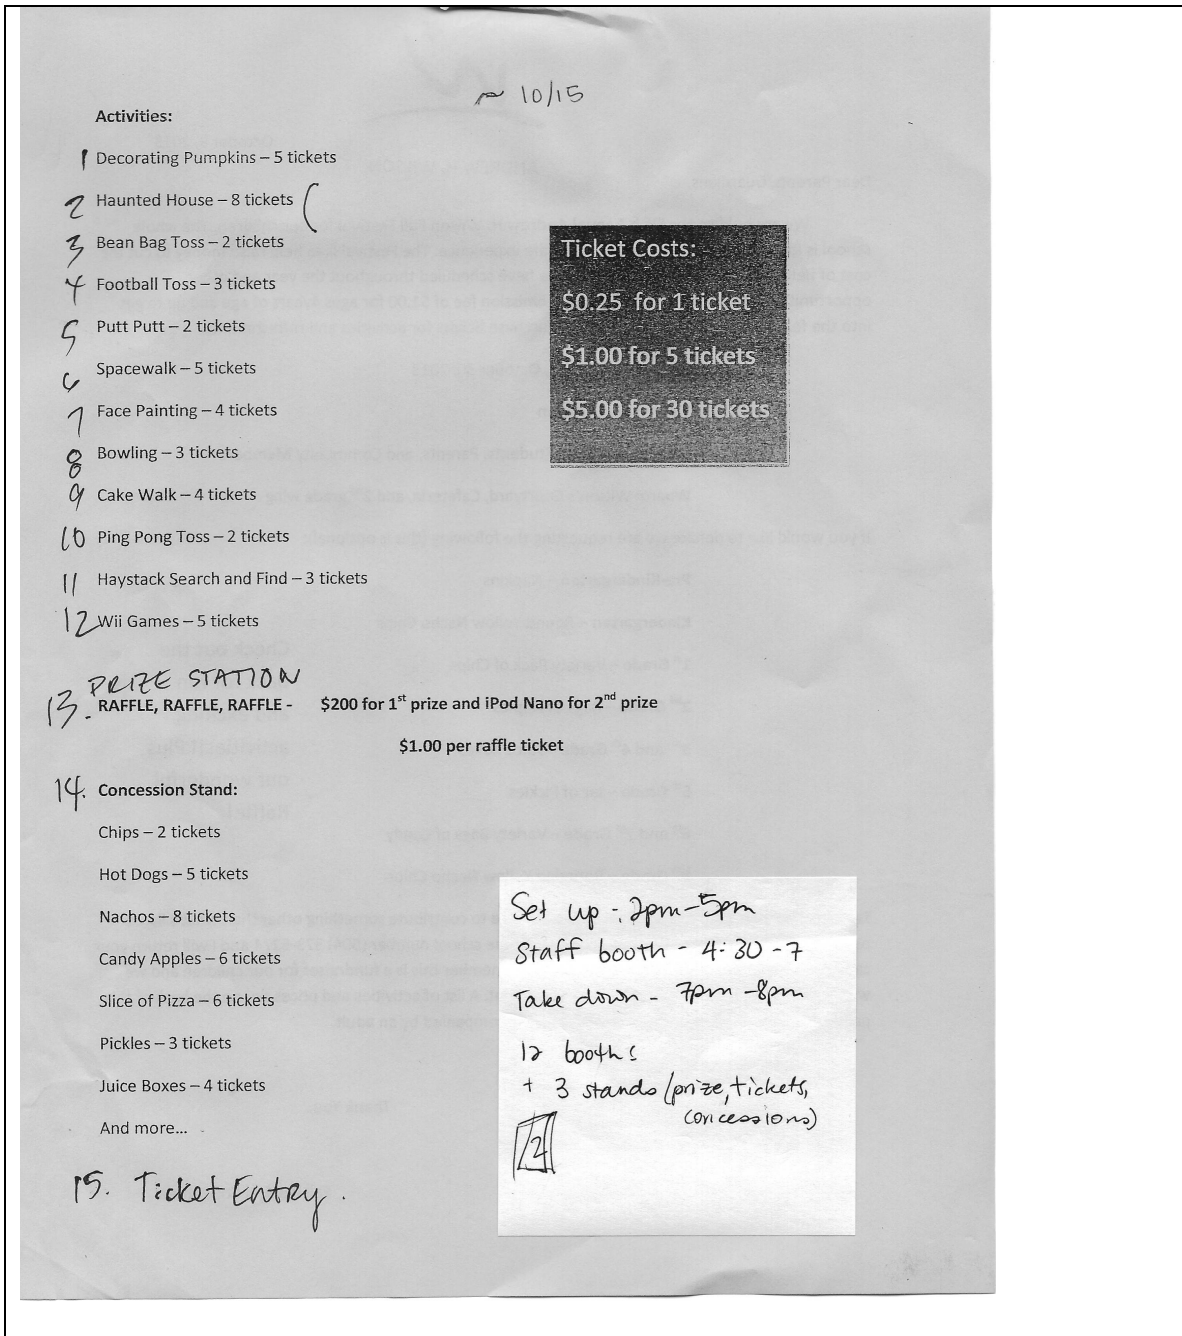 ~ 10/15
Activities:
1 Decorating Pumpkins – 5 tickets
2 Haunted House – 8 tickets (
3 Bean Bag Toss – 2 tickets
4 Football Toss – 3 tickets
5 Putt Putt – 2 tickets
6 Spacewalk – 5 tickets
7 Face Painting – 4 tickets
8 Bowling – 3 tickets
9 Cake Walk – 4 tickets
10 Ping Pong Toss – 2 tickets
11 Haystack Search and Find – 3 tickets
12 Wii Games – 5 tickets
Ticket Costs:
$0.25 for 1 ticket
$1.00 for 5 tickets
$5.00 for 30 tickets
PRIZE STATION
13. RAFFLE, RAFFLE, RAFFLE - $200 for 1st prize and iPod Nano for 2nd prize
$1.00 per raffle ticket
14. Concession Stand:
Chips – 2 tickets
Hot Dogs – 5 tickets
Nachos – 8 tickets
Candy Apples – 6 tickets
Slice of Pizza – 6 tickets
Pickles – 3 tickets
Juice Boxes – 4 tickets
And more...
15. Ticket Entry.
Set up - 2pm-5pm
Staff booth - 4:30-7
Take down - 7pm-8pm
12 booths
+ 3 stands (prize, tickets,
concessions)